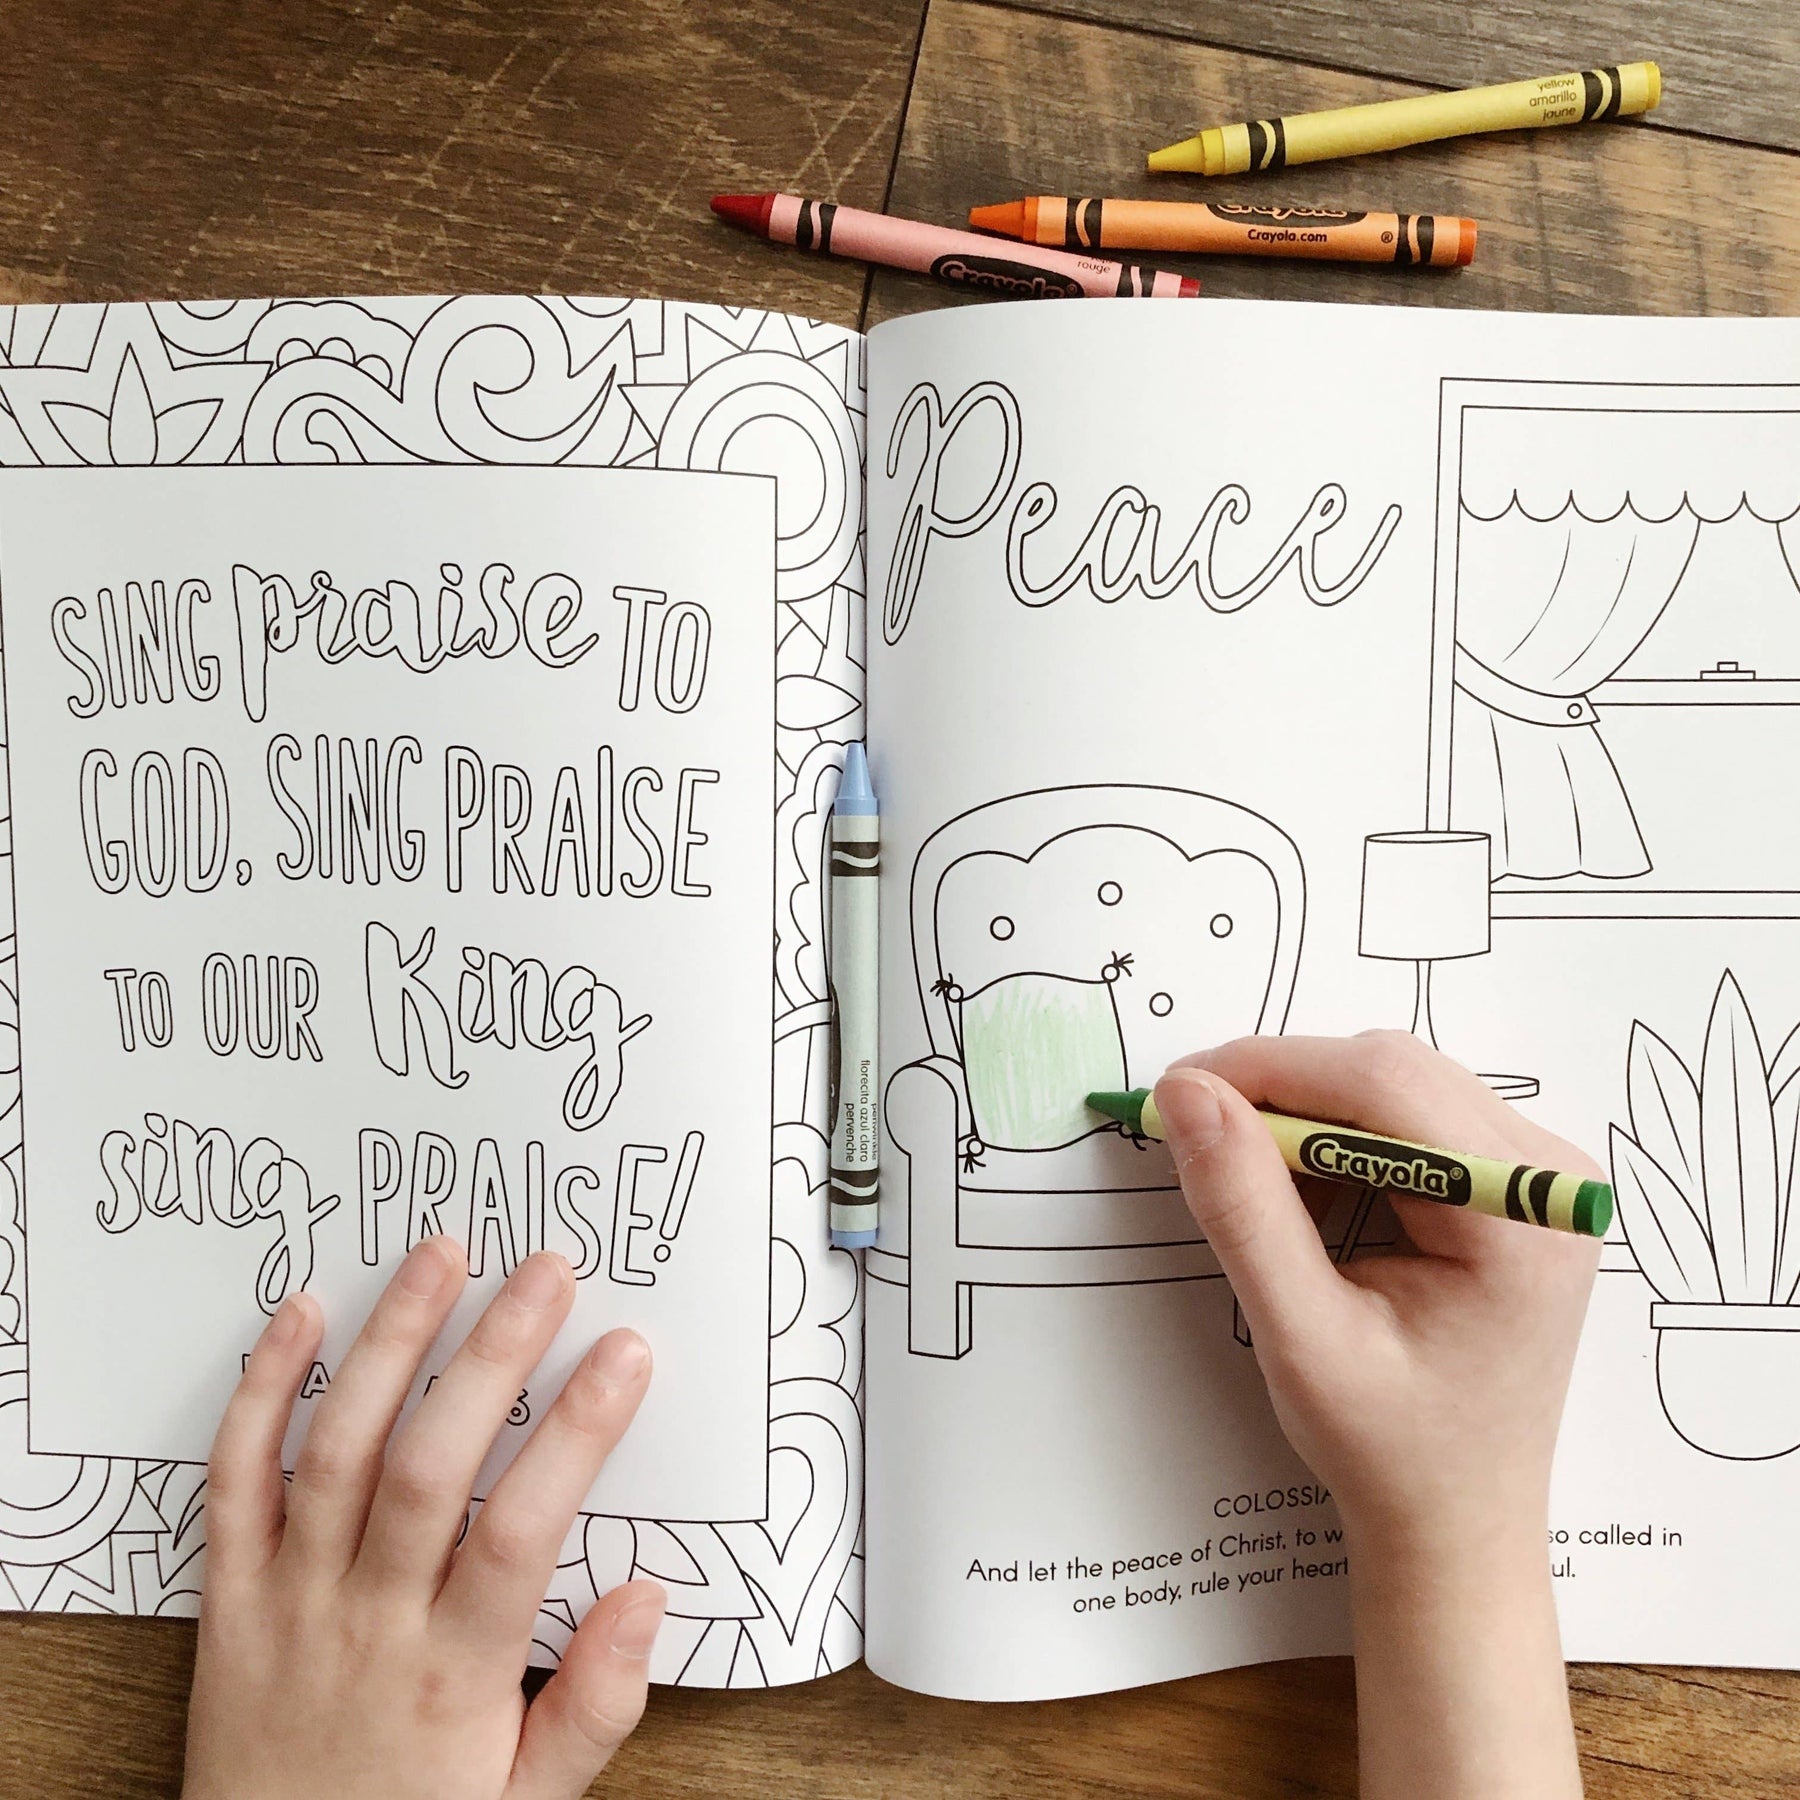 yellow
amarillo
jaune
Crayola
Crayola.com
rouge
Crayola
SING praise TO
GOD, SING PRAISE
TO OUR King
sing PRAISE!
Peace
periwinkle
florecita azul claro
pervenche
Crayola
And let the peace of Christ, to
so called in
one body, rule your